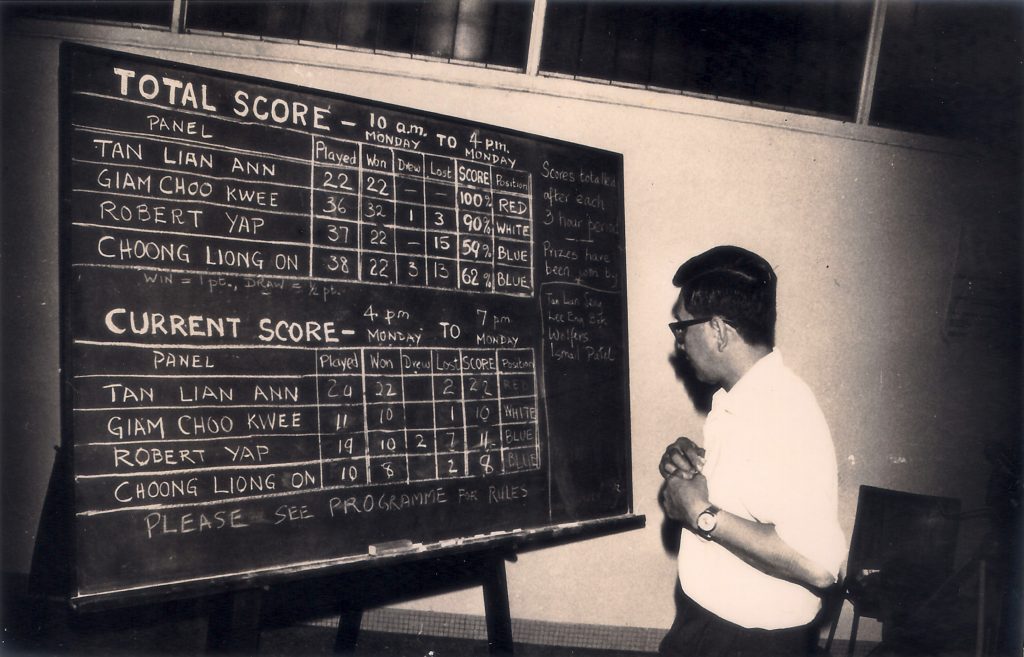 TOTAL SCORE - 10 a.m. MONDAY TO 4 p.m. MONDAY
PANEL Played Won Drew Lost SCORE Position
TAN LIAN ANN 22 22 - - 100% RED
GIAM CHOO KWEE 36 32 1 3 90% WHITE
ROBERT YAP 37 22 - 15 59% BLUE
CHOONG LIONG ON 38 22 3 13 62% BLUE
WIN = 1 pt., DRAW = ½ pt.
CURRENT SCORE - 4 pm MONDAY TO 7 pm MONDAY
PANEL Played Won Drew Lost SCORE Position
TAN LIAN ANN 24 22 2 22 RED
GIAM CHOO KWEE 11 10 1 10 WHITE
ROBERT YAP 19 10 2 7 11 BLUE
CHOONG LIONG ON 10 8 2 8 BLUE
PLEASE SEE PROGRAMME FOR RULES
Scores totalled
after each
3 hour period
Prizes have
been won by
Tan Lian
Lee Eng
Wolfers
Ismail Patel